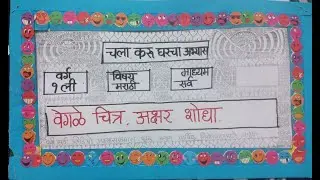 चला करू घरचा अभ्यास
वर्ग १ली
विषय मराठी
माध्यम सर्व
वेगळे चित्र, अक्षर शोधा.